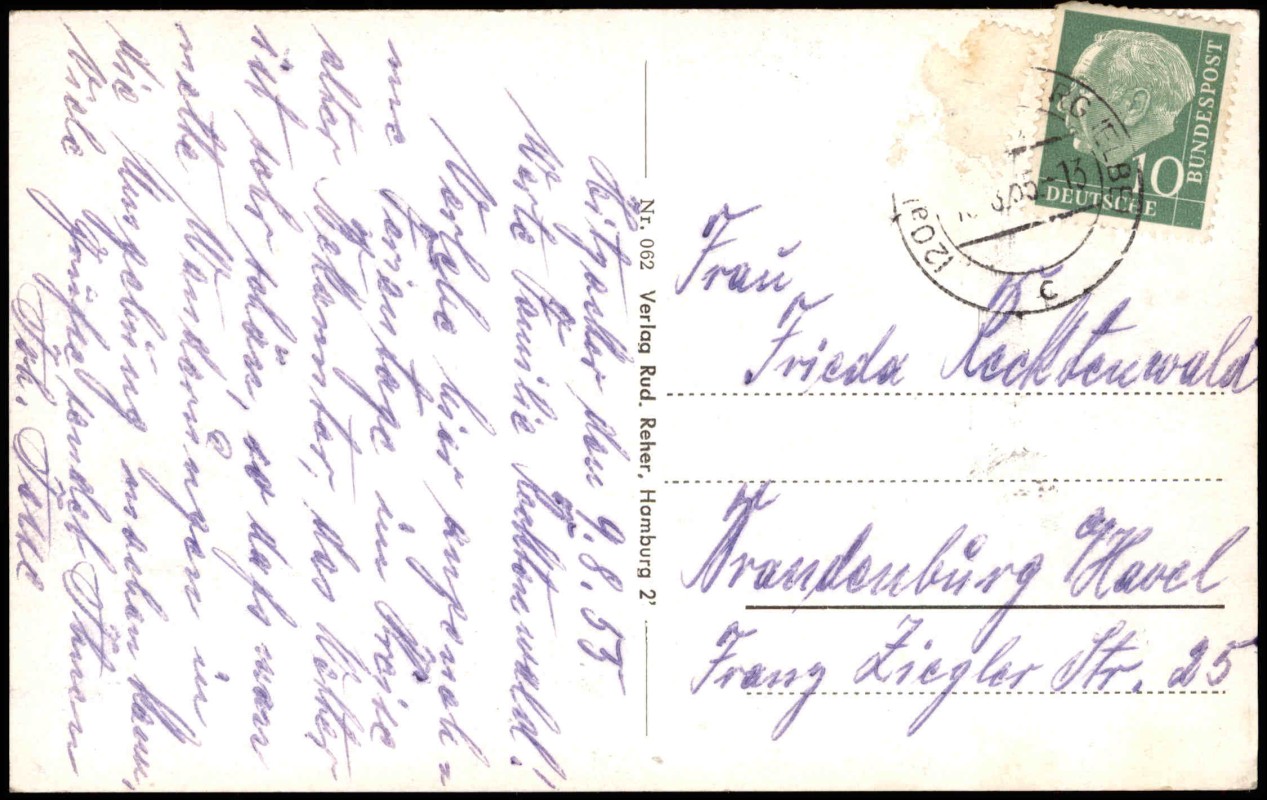 Hitzacker den 9.8.55
Werte Familie Recktenwald!
Verlebe hier angeneh-
me Ferientage im Kreise
alter Bekannter, das Wetter
ist sehr schön, so dass man
nette Wanderungen in
die Umgebung machen kann,
Viele Grüße sendet Ihnen
Nr. 062 Verlag Rud. Reher, Hamburg 2
DEUTSCHE BUNDESPOST
10
RG (ELBE
(20a
Frau
Frieda Recktenwald
Brandenburg Havel
Franz Ziegler Str. 25